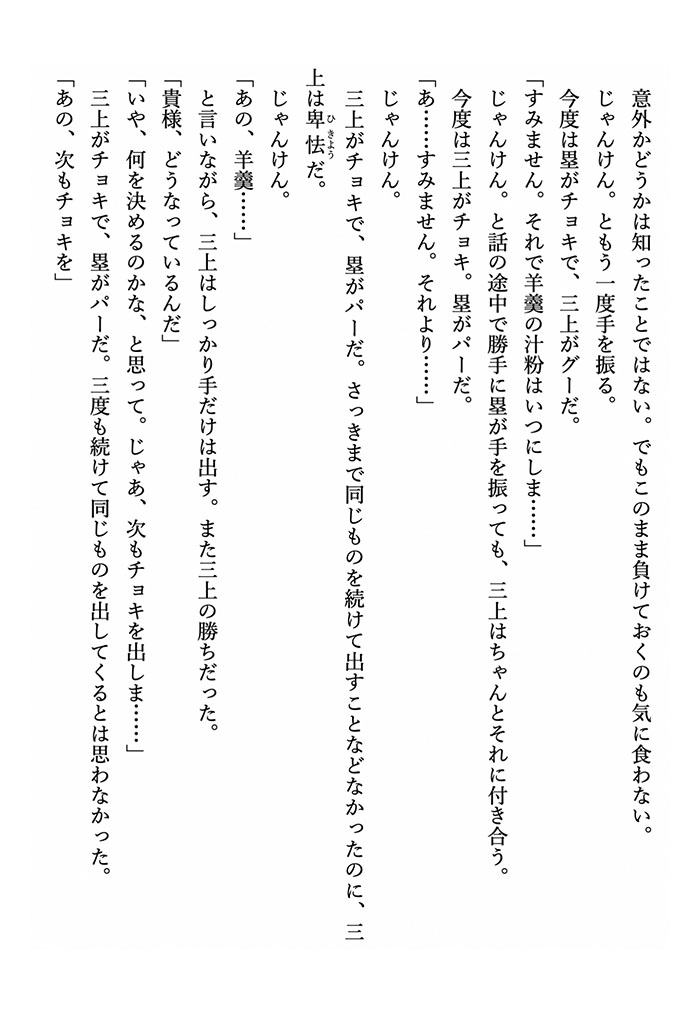 意外かどうかは知ったことではない。でもこのまま負けておくのも気に食わない。
じゃんけん。ともう一度手を振る。
今度は塁がチョキで、三上がグーだ。
「すみません。それで羊羹の汁粉はいつにしま……」
じゃんけん。と話の途中で勝手に塁が手を振っても、三上はちゃんとそれに付き合う。
今度は三上がチョキ。塁がパーだ。
「あ……すみません。それより……」
じゃんけん。
三上がチョキで、塁がパーだ。さっきまで同じものを続けて出すことなどなかったのに、三
上は卑怯だ。
ひきよう
じゃんけん。
「あの、羊羹……」
と言いながら、三上はしっかり手だけは出す。また三上の勝ちだった。
「貴様、どうなっているんだ」
「いや、何を決めるのかな、と思って。じゃあ、次もチョキを出しま……」
三上がチョキで、塁がパーだ。三度も続けて同じものを出してくるとは思わなかった。
「あの、次もチョキを」